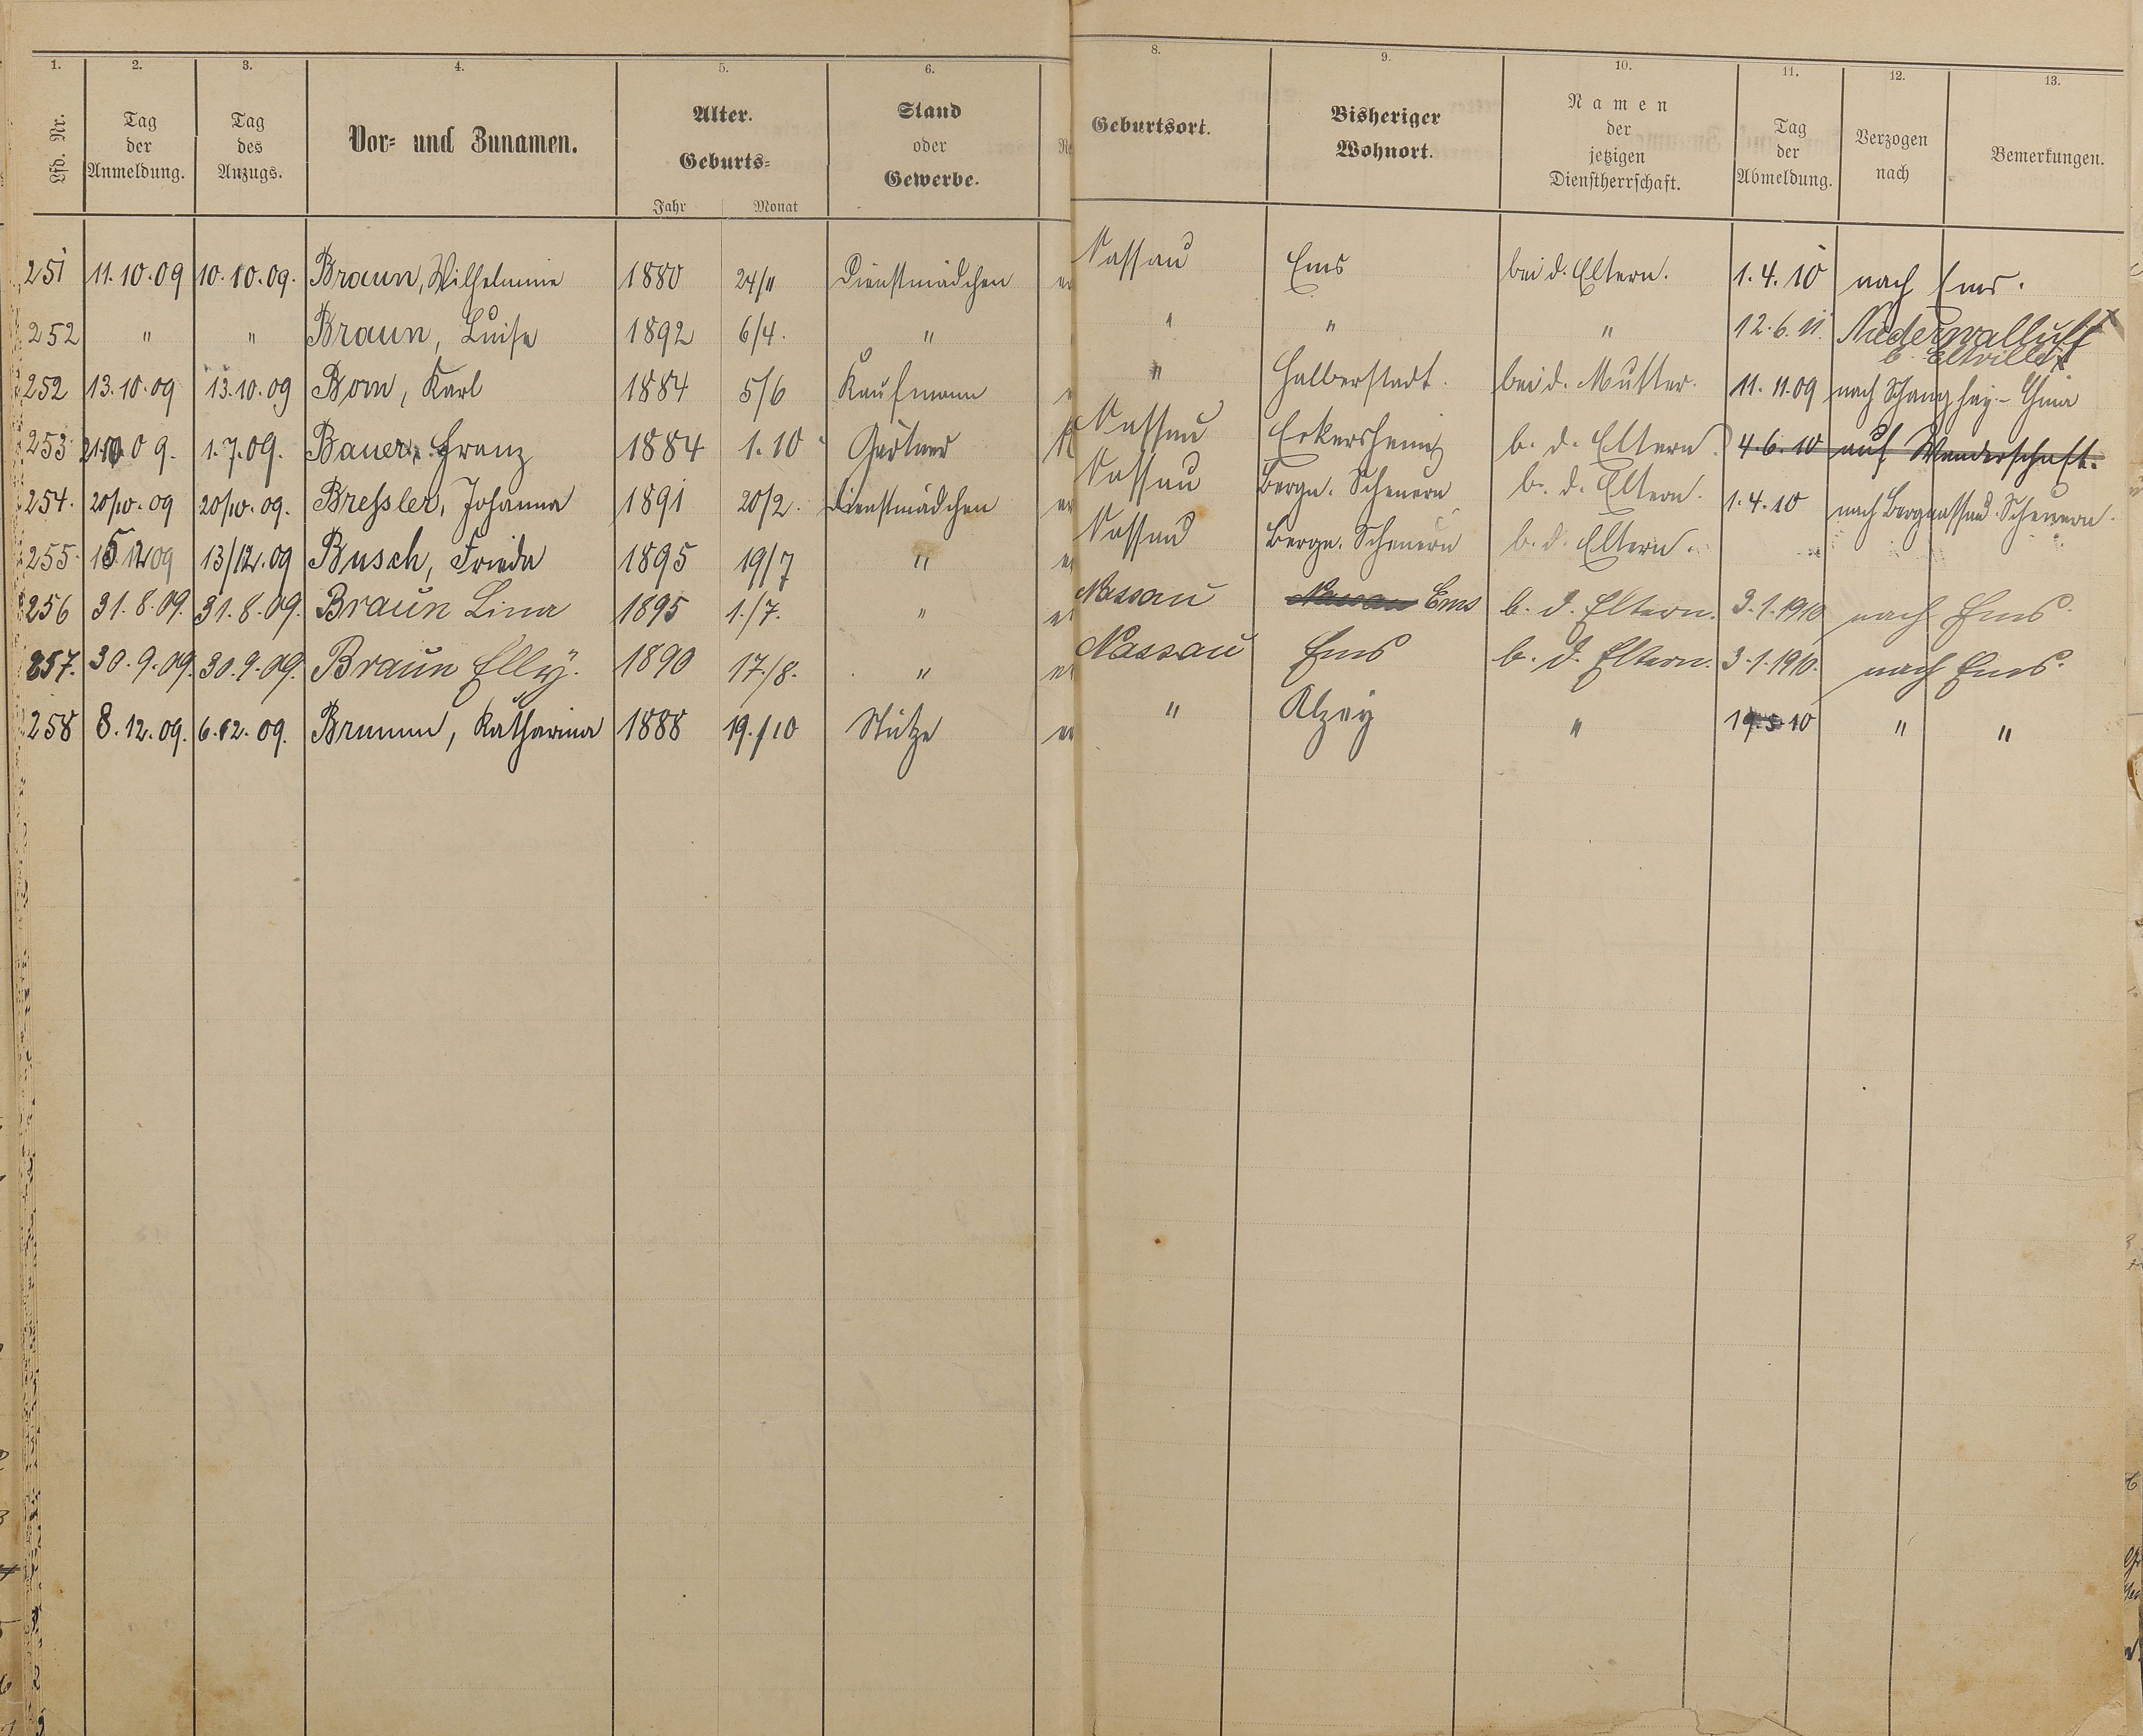 1. 2. 3. 4. 5. 6. 8. 9. 10. 11. 12. 13.
Lfd. Nr. Tag der Anmeldung. Tag des Anzugs. Vor- und Zunamen. Alter. Geburts- Jahr Monat Stand oder Gewerbe. Geburtsort. Bisheriger Wohnort. Namen der jetzigen Dienstherrschaft. Tag der Abmeldung. Verzogen nach Bemerkungen.
251 11.10.09 10.10.09. Braun, Wilhelmine 1880 24/11 Dienstmädchen Nassau Ems bei d. Eltern. 1.4.10 nach Ems.
252 " " Braun, Luise 1892 6/4. " " " " 12.6.11. Niederwalluff
b. Eltville
252 13.10.09 13.10.09 Born, Karl 1884 5/6 Kaufmann " Halberstadt. bei d. Mutter. 11.11.09 nach Schanghay-China
253 09. 1.7.09. Bauer, Franz 1884 1.10 Gärtner Nassau b. d. Eltern. 4.6.10 auf Wanderschaft.
254. 20/10.09 20/10.09. Bressler, Johanna 1891 20/2. Dienstmädchen Nassau Bergn. Scheuern b. d. Eltern. 1.4.10 nach Bergnassau-Scheuern.
255. 15.12.09 13/12.09 Busch, Frieda 1895 19/7 " Nassau Bergn. Scheuern b. d. Eltern.
256 31.8.09. 31.8.09. Braun Lina 1895 1./7. " Nassau Nassau Ems b. d. Eltern. 3.1.1910 nach Ems.
257. 30.9.09. 30.9.09. Braun Elly. 1890 17./8. " Nassau Ems b. d. Eltern. 3.1.1910. nach Ems.
258 8.12.09. 6.12.09. Brumm, Katharina 1888 19./10 Stütze " Alzey " 19.5.10 " "